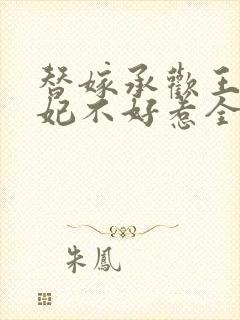 替嫁承歡王
妃不好惹全
朱鳳